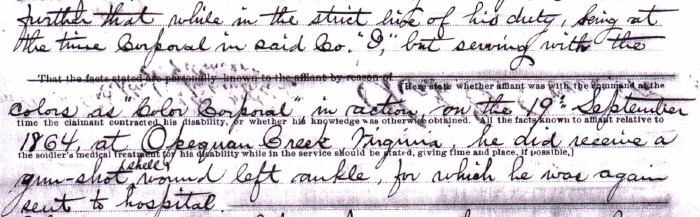 further that while in the strict line of his duty, being at
the time Corporal in said Co. "D," but serving with the
That the facts stated are personally known to the affiant by reason of
(Here state whether affiant was with the command at the
colors as "Color Corporal" in action on the 19th September
time the claimant contracted his disability, or whether his knowledge was otherwise obtained. All the facts known to affiant relative to
1864, at Opequan Creek Virginia, he did receive a
the soldier's medical treatment for his disability while in the service should be stated, giving time and place, if possible.)
shell
gun-shot wound left ankle, for which he was again
sent to hospital.